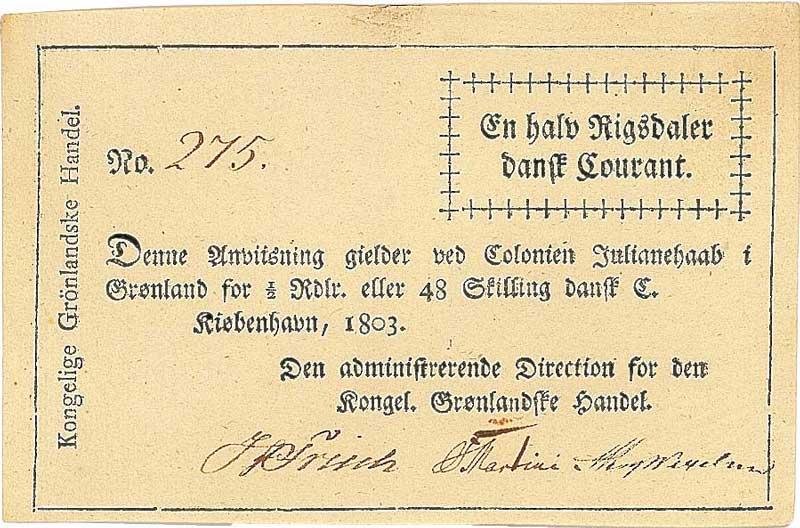 Kongelige Grönlandske Handel.
No. 275.
En halv Rigsdaler
dansk Courant.
Denne Anviisning gielder ved Colonien Julianehaab i
Grønland for ½ Rdlr. eller 48 Skilling dansk C.
Kiøbenhavn, 1803.
Den administrerende Direction for den
Kongel. Grønlandske Handel.
Frisch Martini